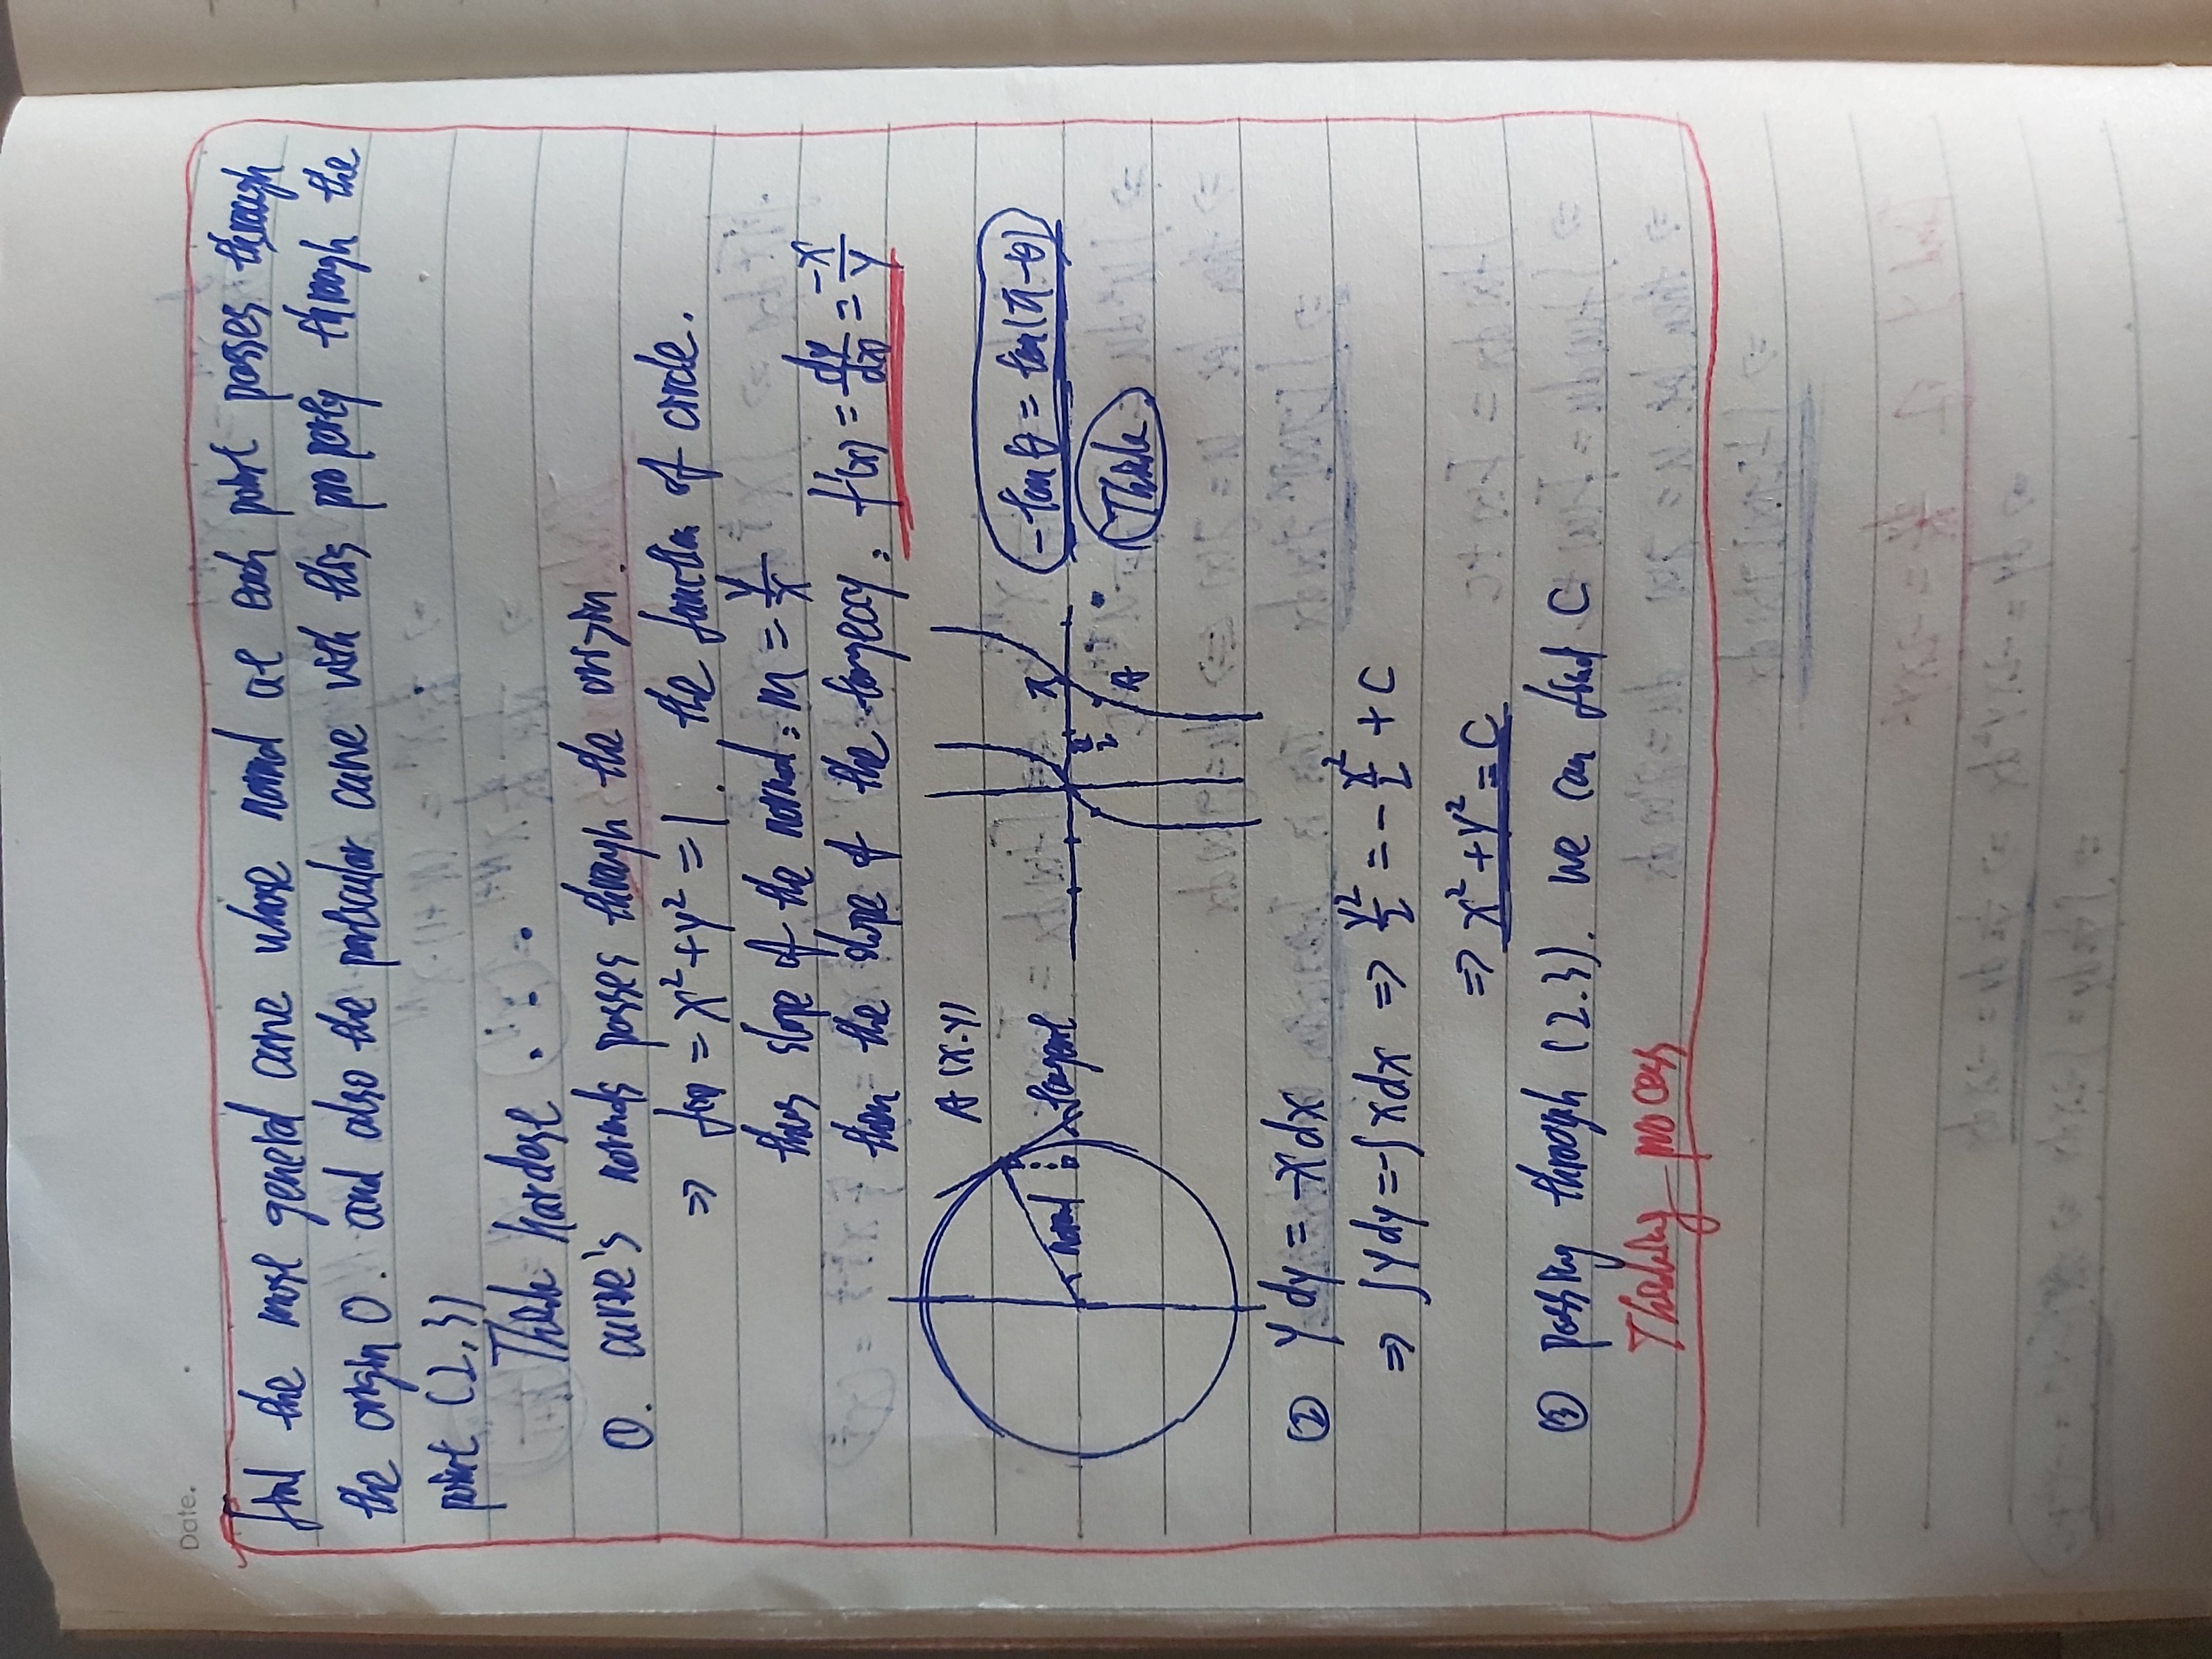 Date.
Find the most general curve whose normal at each point passes through
the origin O. and also the particular curve with this property through the
point (2,3)
Think hardest . . .
①. curve's normals passes through the origin.
⇒ f(x) = x²+y² = 1. the function of circle.
thus slope of the normal: m = y/x
then the slope of the : f'(x) = dy/dx = -x/y
A (x.y)
normal
tangent
π
π/2
A
-tan θ = tan(π-θ)
Think
② y dy = -x dx
⇒ ∫y dy = -∫x dx ⇒ y²/2 = -x²/2 + C
⇒ x² + y² = C
③ passing through (2.3). we can find C
Thinking process